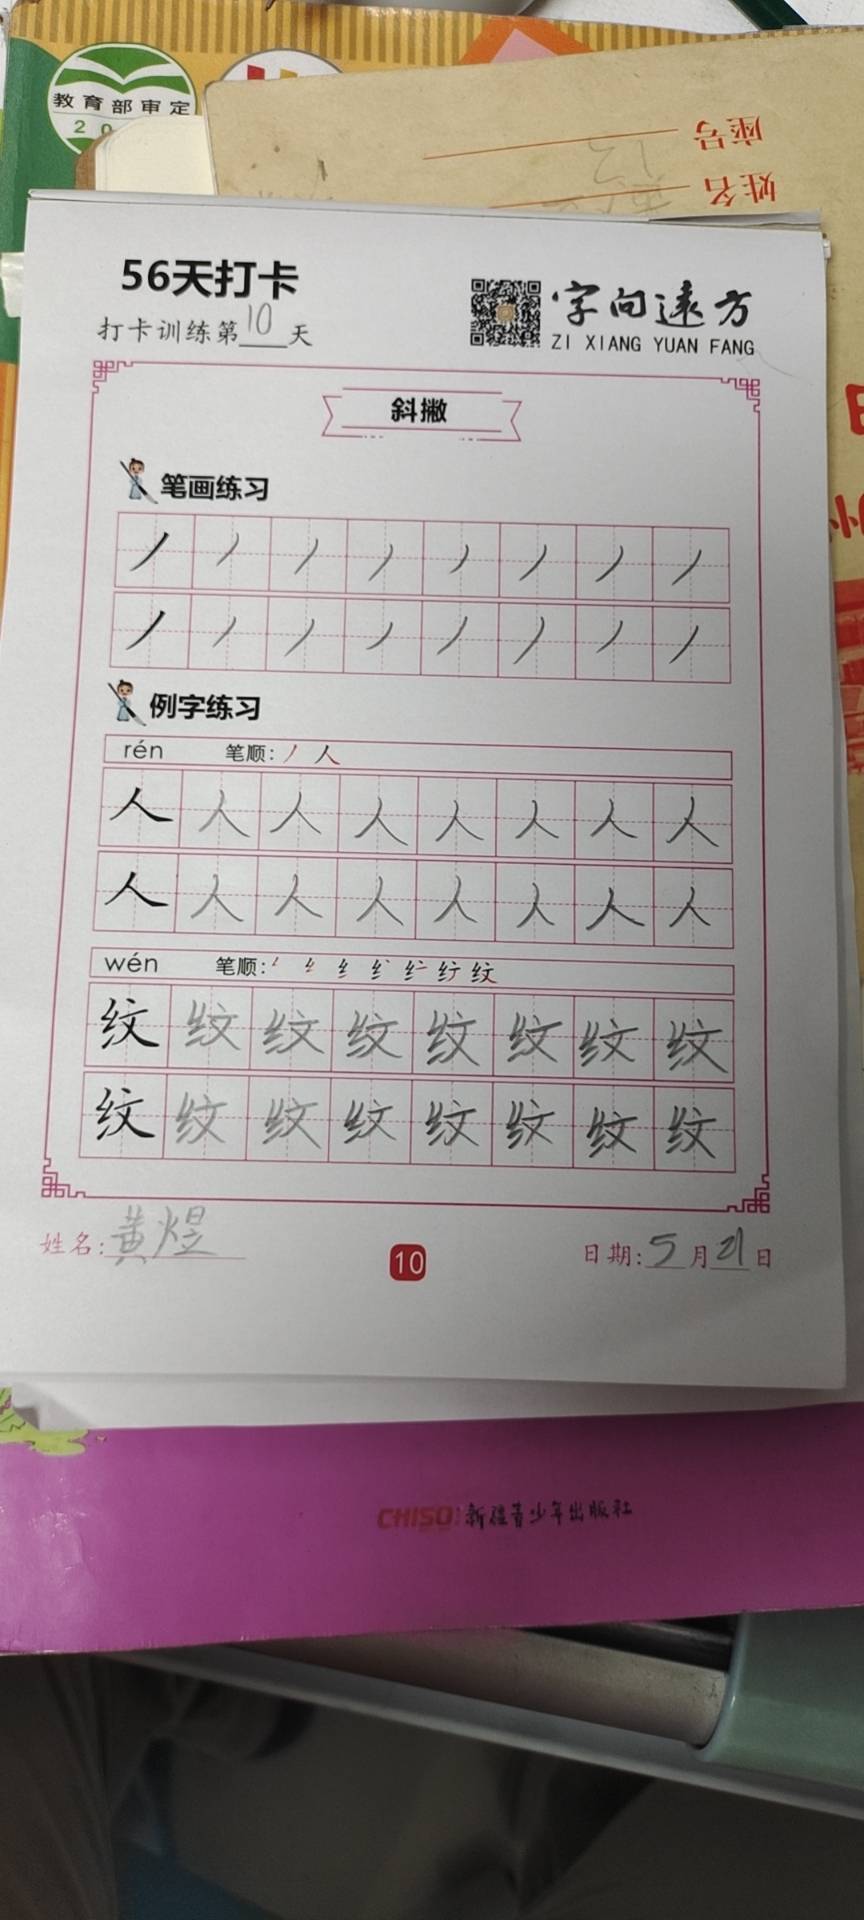 教育部审定
座号
姓名
56天打卡
打卡训练第10天
字向遠方
ZI XIANG YUAN FANG
斜撇
笔画练习
丿丿丿丿丿丿丿丿
丿丿丿丿丿丿丿丿
例字练习
rén 笔顺: 丿 人
人人人人人人人人
人人人人人人人人
wén 笔顺:
纹纹纹纹纹纹纹纹
纹纹纹纹纹纹纹纹
姓名: 黄煜
10
日期: 5月21日
CHISO 新疆青少年出版社